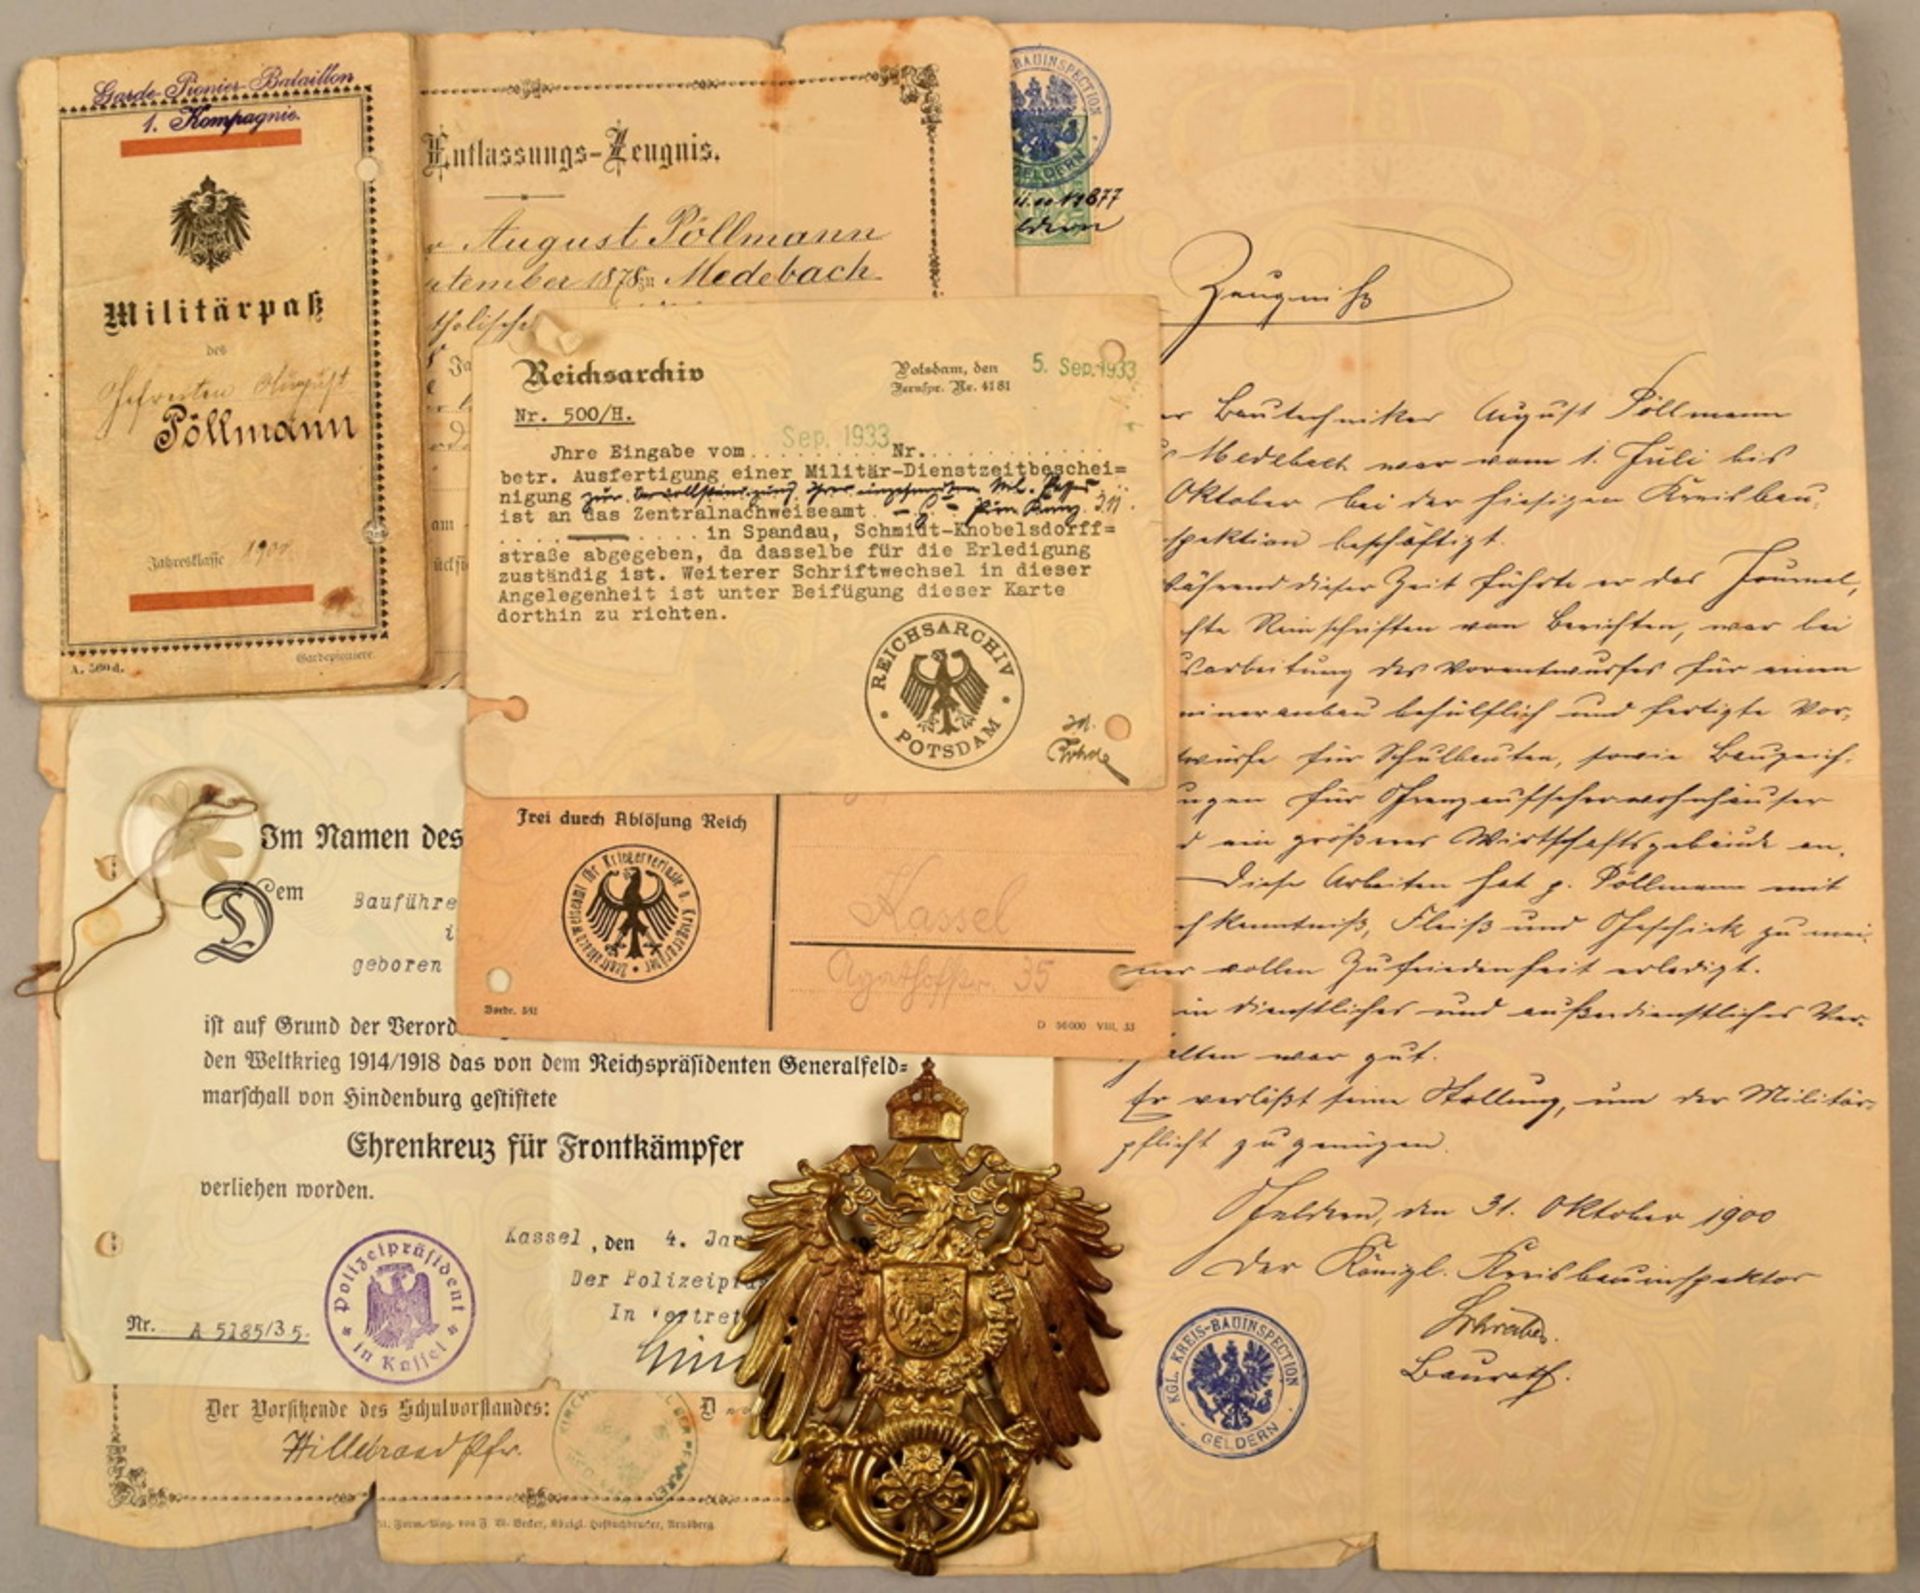 Garde-Pionier-Bataillon
1. Kompagnie.
Militärpaß
des
Gefreiten August
Pöllmann
Jahresklasse 1900.
A. 560 d.
Gardepioniere.
Entlassungs-Zeugnis.
August Pöllmann
tember 1878 zu Medebach
tholische
BAUINSPECTION
GELDERN
ldern
Reichsarchiv
Potsdam, den 5. Sep. 1933
Fernspr. Nr. 4181
Nr. 500/H.
Jhre Eingabe vom Sep. 1933 Nr.
betr. Ausfertigung einer Militär-Dienstzeitbeschei=
nigung zur Vervollständigung Ihres eingesandten Mil. Passes
ist an das Zentralnachweiseamt
in Spandau, Schmidt-Knobelsdorff=
straße abgegeben, da dasselbe für die Erledigung
zuständig ist. Weiterer Schriftwechsel in dieser
Angelegenheit ist unter Beifügung dieser Karte
dorthin zu richten.
REICHSARCHIV
POTSDAM
Frei durch Ablösung Reich
Zentralnachweiseamt für Kriegerverluste u. Kriegergräber
Kassel
Agathofstr. 35
Vordr. 541
D 56000 VIII, 33
Im Namen des
Dem Bauführe
geboren
ist auf Grund der Verord
den Weltkrieg 1914/1918 das von dem Reichspräsidenten Generalfeld=
marschall von Hindenburg gestiftete
Ehrenkreuz für Frontkämpfer
verliehen worden.
Kassel, den 4. Jan
Der Polizeipräs
In Vertret
Polizeipräsident
in Kassel
Nr. A 5185/35.
Der Vorsitzende des Schulvorstandes:
Hillebrand Pfr.
Form.-Mag. von F. W. Becker, Königl. Hofbuchdrucker, Arnsberg.
Zeugniß
er Bautechniker August Pöllmann
s Medebach war vom 1. Juli bis
Oktober bei der hiesigen Kreisbau-
spektion beschäftigt.
ährend dieser Zeit führte er das Journal,
chte Reinschriften von Berichten, war bei
usarbeitung des Vorentwurfes für einen
minaranbau behülflich und fertigte Vor-
twürfe für Schulbauten, sowie Bauzeich-
ngen für Grenzaufseherwohnhäuser
d ein größeres Wirtschaftsgebäude an.
Diese Arbeiten hat p. Pöllmann mit
ch Kenntniß, Fleiß und Geschick zu mei-
ner vollen Zufriedenheit erledigt.
in dienstliches und außerdienstliches Ver-
halten war gut.
Er verläßt seine Stellung, um der Militär-
pflicht zu genügen.
Geldern, den 31. Oktober 1900
Der Königl. Kreisbauinspektor
Schreiber.
Baurath.
KGL. KREIS-BAUINSPECTION
GELDERN